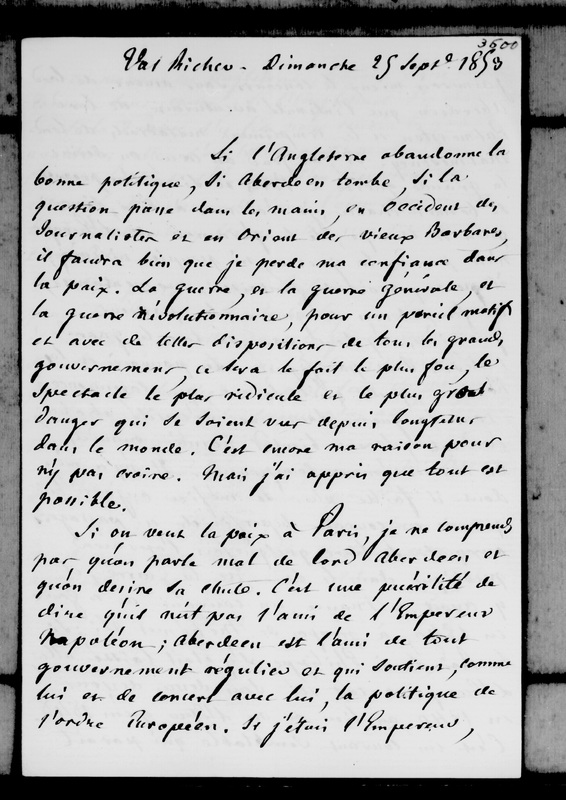 3600
Val Richer - Dimanche 25 Septe 1853
Si l'Angleterre abandonne la
bonne politique, si Aberdeen tombe, si la
question passe dans les mains, en Occident des
Journalistes et en Orient des vieux Barbares,
il faudra bien que je perde ma confiance dans
la paix. La guerre, et la guerre générale, et
la guerre révolutionnaire, pour un pareil motif
et avec de telles dispositions de tous les grands
gouvernemens, ce sera le fait le plus fou, le
spectacle le plus ridicule et le plus grand
danger qui se soient vus depuis longtems
dans le monde. C'est encore ma raison pour
n'y pas croire. Mais j'ai appris que tout est
possible.
Si on veut la paix à Paris, je ne comprends
pas qu'on parle mal de lord Aberdeen et
qu'on desire sa chute. C'est une puérilité de
dire qu'il n'est pas l'ami de l'Empereur
Napoléon ; Aberdeen est l'ami de tout
gouvernement régulier et qui soutient, comme
lui et de concert avec lui, la politique de
l'ordre Européen. Si j'étais l'Empereur,